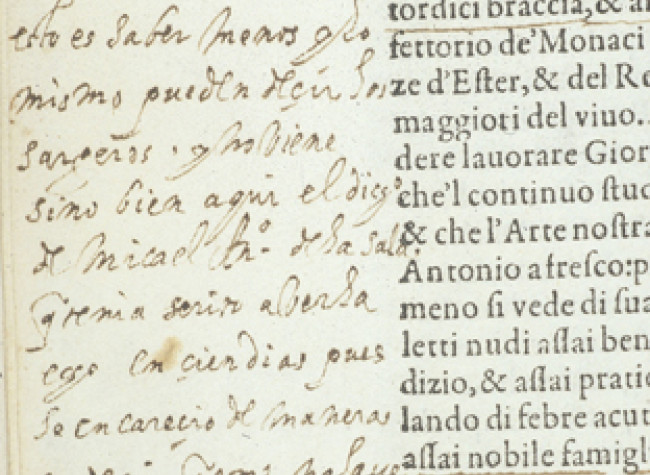 esto es saber menos y lo
mismo pueden deçir los
sargeros . y no viene
sino bien aqui el dicho
de Micael An.º de la sala
q tenia a verla
en cien dias pues
se encareçio de maneras
tordici braccia, &
fettorio de' Monaci
ze d'Ester, & del
maggiori del viuo.
dere lauorare Gior
che'l continuo stud
& che l'Arte nostra
Antonio a fresco: p
meno si vede di sua
letti nudi assai ben
dizio, & assai pratic
lando di febre acut
assai nobile famigl